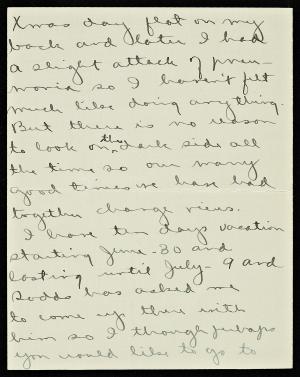 Xmas day flat on my
back and later I had
a slight attack of pneu-
monia so I haven't felt
much like doing anything.
But there is no reason
to look on the dark side all
the time so our many
good times we have had
together change views.
I have ten days vacation
starting June - 30 and
lasting until July - 9 and
has asked me
to come up there with
him so I though perhaps
you would like to go to